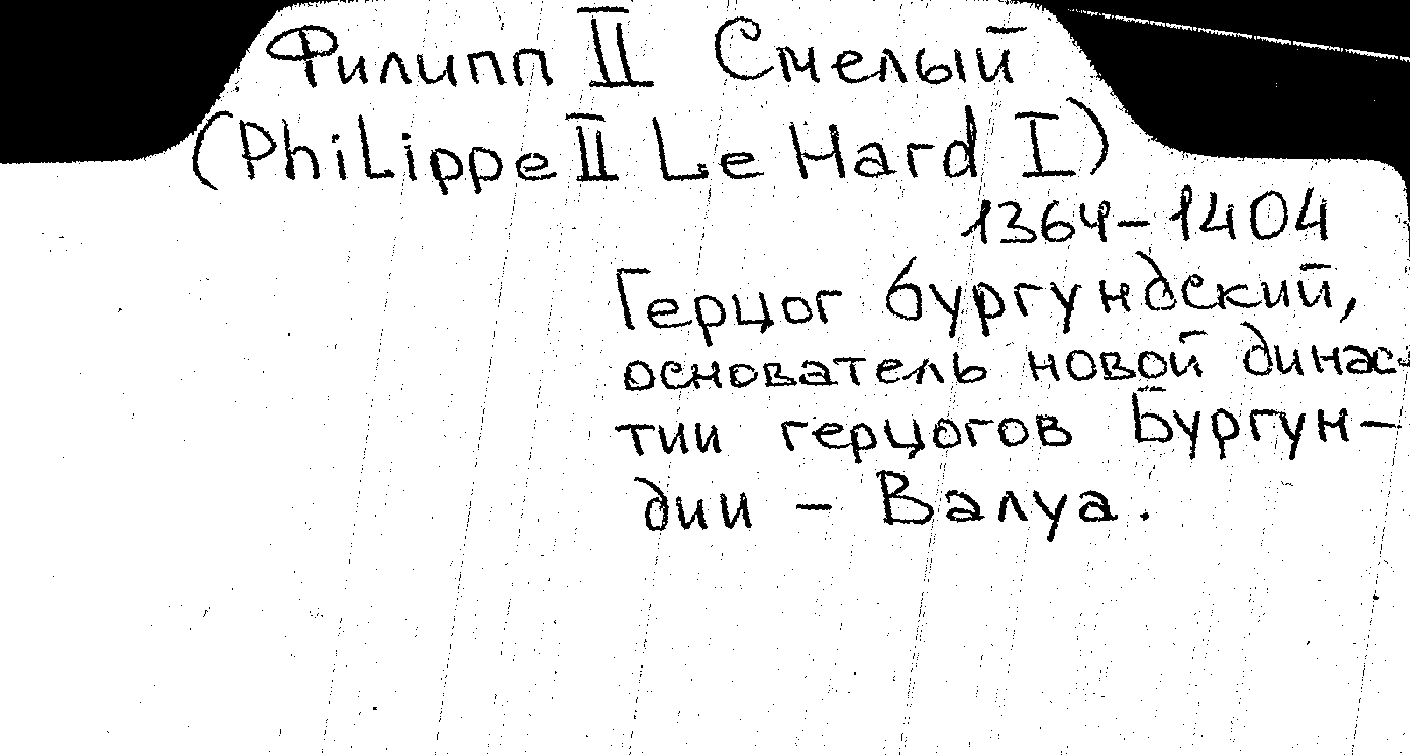 Филипп II Смелый
(Philippe II Le Hard I)
1364-1404
Герцог бургундский,
основатель новой динас-
тии герцогов Бургун-
дии - Валуа.